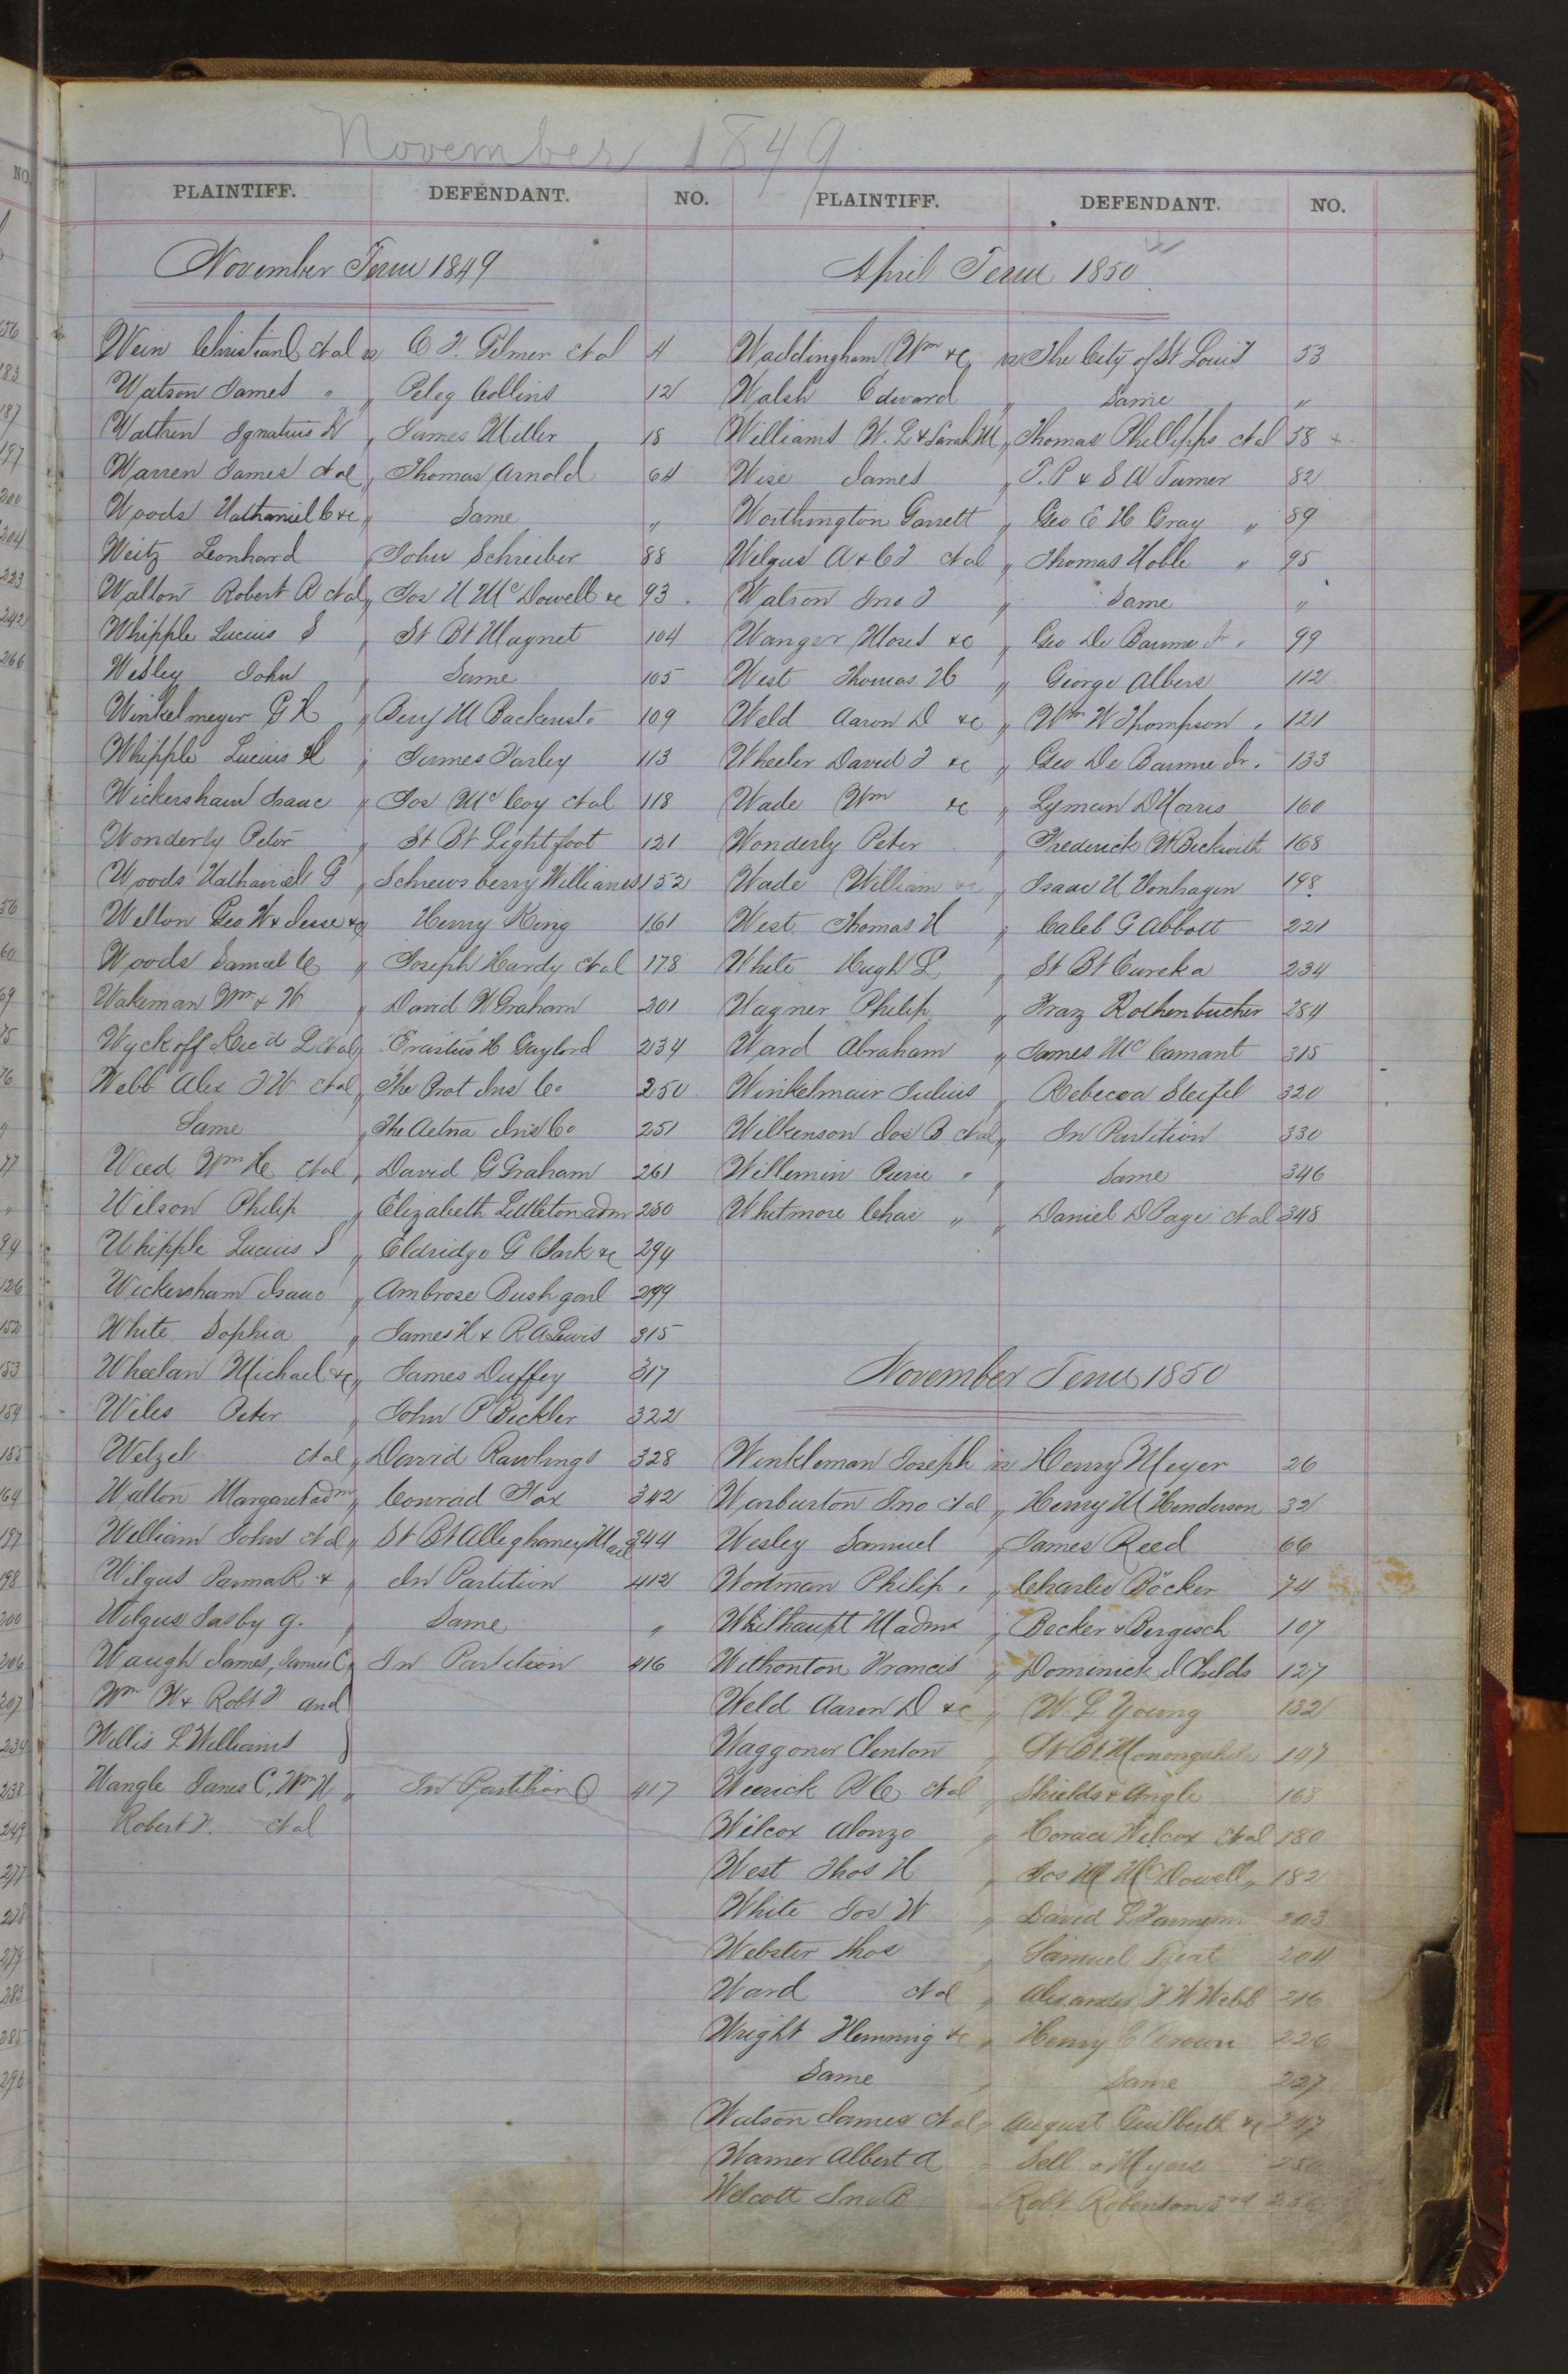 November 1849
PLAINTIFF. DEFENDANT. NO.
November Term 1849
Wein Christian et al vs C F. Gilmer et al 4
Watson James " " Peleg Collins 12
Walthen Ignatius N " James Miller 18
Warren James et al " Thomas Arnold 64
Woods Nathaniel C &c " Same "
Weitz Leonhard John Schreiber 88
Walton Robert A et al " Jos N McDowell &c 93
Whipple Lucius S " St Bt Magnet 104
Wesley John " Same 105
Winkelmeyer G H " Benj M Backensto 109
Whipple Lucius " James Farley 113
Wickersham Isaac " Jos McCoy et al 118
Wonderly Peter " St Bt Lightfoot 121
Woods Nathaniel G " Schrewsberry Williams 152
Welton Geo W & Jesse &c Henry King 161
Woods Samuel C " Joseph Hardy et al 178
Wakeman Wm & W " David W Graham 201
Wyckoff L et al " Erastus H Gaylord 234
Webb Alex F W et al " The Prot Ins Co 250
Same " The Aetna Ins Co 251
Weed Wm H et al " David G Graham 261
Wilson Philip " Elizabeth Littleton adm 280
Whipple Lucius S " Eldridge G Clark &c 294
Wickersham Isaac " Ambrose Bush garl 299
White Sophia " James H & R A Lewis 315
Wheelan Michael &c " James Duffey 317
Wiles Peter " John P Beckler 322
Welzel et al " David Rawlings 328
Walton Margaret adm " Conrad Fox 342
William John et al " St Bt Alleghomey Mail 344
Wilgus Parma R & " In Partition 412
Wilgus Jasby g. " Same "
Waugh James, Samuel C " In Partition 416
Wm W & Robt F and
Willis L Williams }
Wangle James C, Wm W " In Partition 417
Robert F. et al
PLAINTIFF. DEFENDANT. NO.
April Term 1850
Waddingham Wm &c vs The City of St Louis 53
Walsh Edward " Same "
Williams W. L & Sarah M " Thomas Phillipps et al 58 +
Wise James " T. P & S W Turner 82
Worthington Garrett " Geo E H Gray " 89
Wilgus A & C F et al " Thomas Noble " 95
Watson Jno F " Same "
Wanger Moses &c " Geo De Baume Jr 99
West Thomas H " George Albers 112
Weld Aaron D &c " Wm W Thompson 121
Wheeler David F &c " Geo De Baume Jr. 133
Wade Wm &c " Lyman D Norris 160
Wonderly Peter " Frederick W Beckwith 168
Wade William &c " Isaac N Vonhagen 198
West Thomas H " Caleb G Abbott 221
White Hugh L " St Bt Eureka 234
Wagner Philip " Franz Rothenbucher 284
Ward Abraham " James McCamant 315
Winkelmair Julius " Rebecca Steifel 320
Wilkenson Jos B et al " In Partition 330
Willemin Pierre " " Same 346
Whitmore Chas " " Daniel D Page et al 348
November Term 1850
Winkleman Joseph vs Henry Meyer 26
Warburton Jno et al " Henry M Henderson 32
Wesley Samuel " James Reed 66
Wortman Philip " Charles Böcker 74
Whilhaupt M admx " Becker & Bergesch 107
Withonton Francis " Dominick J Childs 127
Weld Aaron D &c " W. L Young 132
Waggoner Clenton " St Bt Monongahela 147
Weerick R C et al " Shields & Angle 168
Wilcox Alonzo " Horace Wilcox et al 180
West Thos H " Jos N McDowell " 182
White Jos W " David L 203
Webster Thos " Samuel Treat 204
Ward et al " Alexander F W Webb 216
Wright Flemming &c " Henry C Brown 226
Same " Same 227
Watson James et al " August Guilberth &c 247
Warner Albert A " Sell & Myers 250
Wolcott Jno B " Robt Robinson 3rd 256